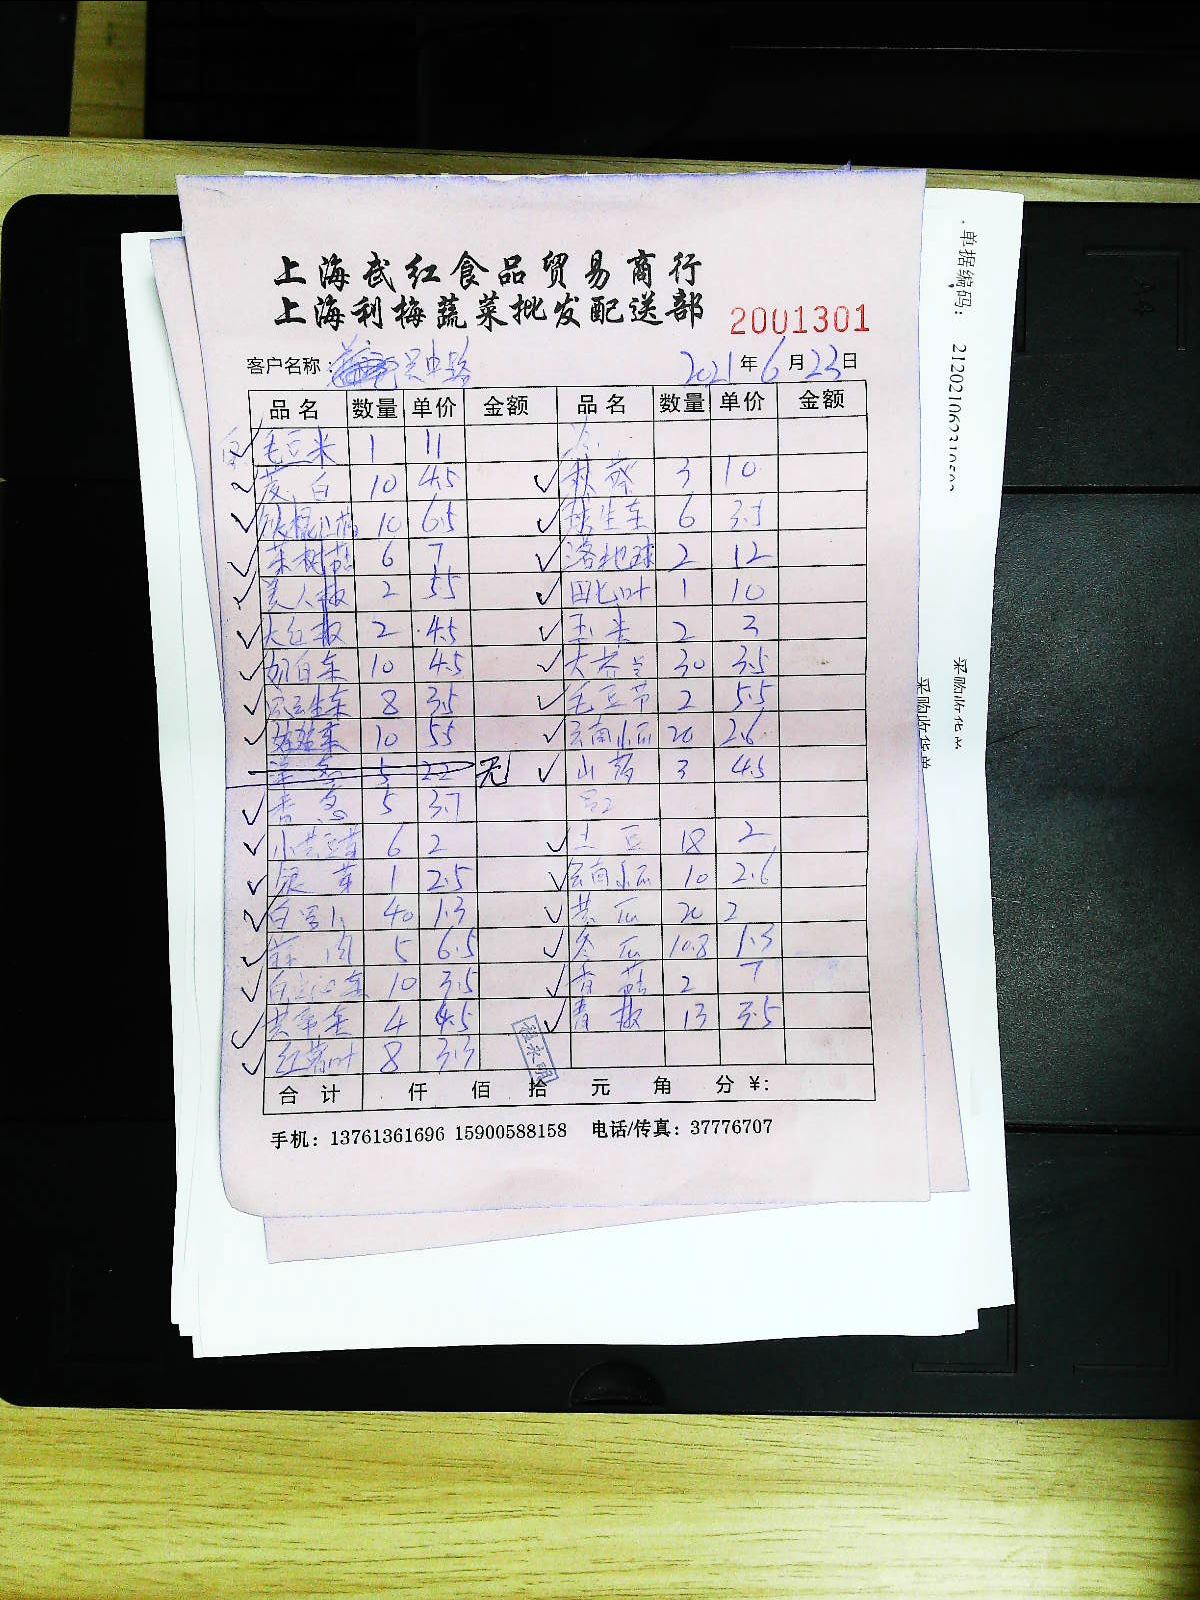 上海武红食品贸易商行
上海利梅蔬菜批发配送部
2001301
客户名称： 吴中路 2021年6月23日
品名 数量 单价 金额 品名 数量 单价 金额
毛豆米 1 11
茭白 10 4.5 秋葵 3 10
铁棍山药 10 6.5 球生菜 6 3.5
茶树菇 6 7 落地球 2 12
美人椒 2 5.5 1 10
大红椒 2 4.5 玉米 2 3
奶白菜 10 4.5 大芥兰 30 3.5
8 3.5 毛豆节 2 5.5
娃娃菜 10 5.5 云南小瓜 20 2.6
5 22 无 山药 3 4.5
香葱 5 3.7
小黄豆芽 6 2 土豆 18 2
银芽 1 2.5 云南小瓜 10 2.6
白萝卜 40 1.3 黄瓜 20 2
5 6.5 冬瓜 10.8 1.3
10 3.5 香菇 2 7
4 4.5 青椒 13 3.5
红薯叶 8 3.3
合计 仟 佰 拾 元 角 分 ¥:
手机：13761361696 15900588158 电话/传真：37776707
单据编码：
采购收货单
采购收货单